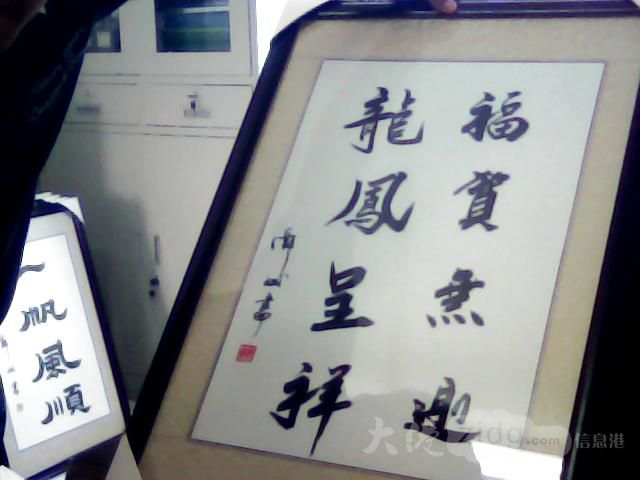 福賀無
龍鳳呈祥
一帆風順
.com 信息港